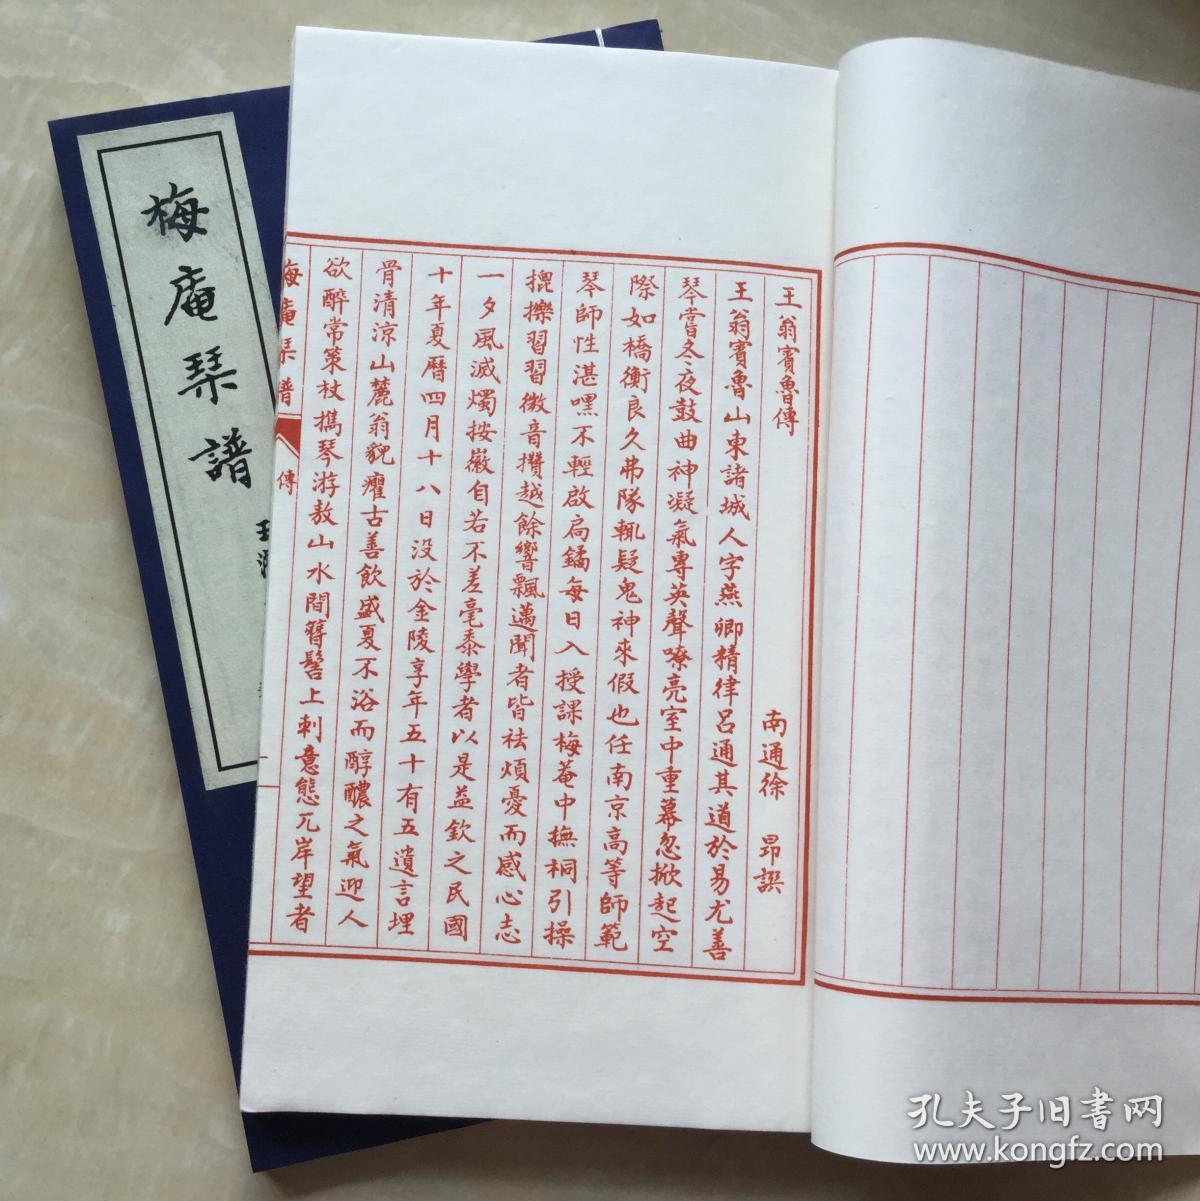 梅庵琹譜
王翁賓魯傳
南通徐 昂譔
王翁賓魯山東諸城人字燕卿精律呂通其道於易尤善
琴嘗冬夜鼓曲神凝氣專英聲嘹亮室中重幕忽掀起空
際如橋衡良久弗隊輒疑鬼神來假也任南京高等師範
琴師性湛嘿不輕啟扃鐍每日入授課梅菴中撫桐引操
摠擽習習徽音攢越餘響飄邁聞者皆祛煩憂而感心志
一夕風滅燭按徽自若不差毫黍學者以是益欽之民國
十年夏曆四月十八日没於金陵享年五十有五遺言埋
骨清涼山麓翁貌癯古善飲盛夏不浴而醇醲之氣迎人
欲醉常策杖攜琴游敖山水間簪髻上刺意態兀岸望者
梅庵琹譜 傳 一
孔夫子旧书网
www.kongfz.com